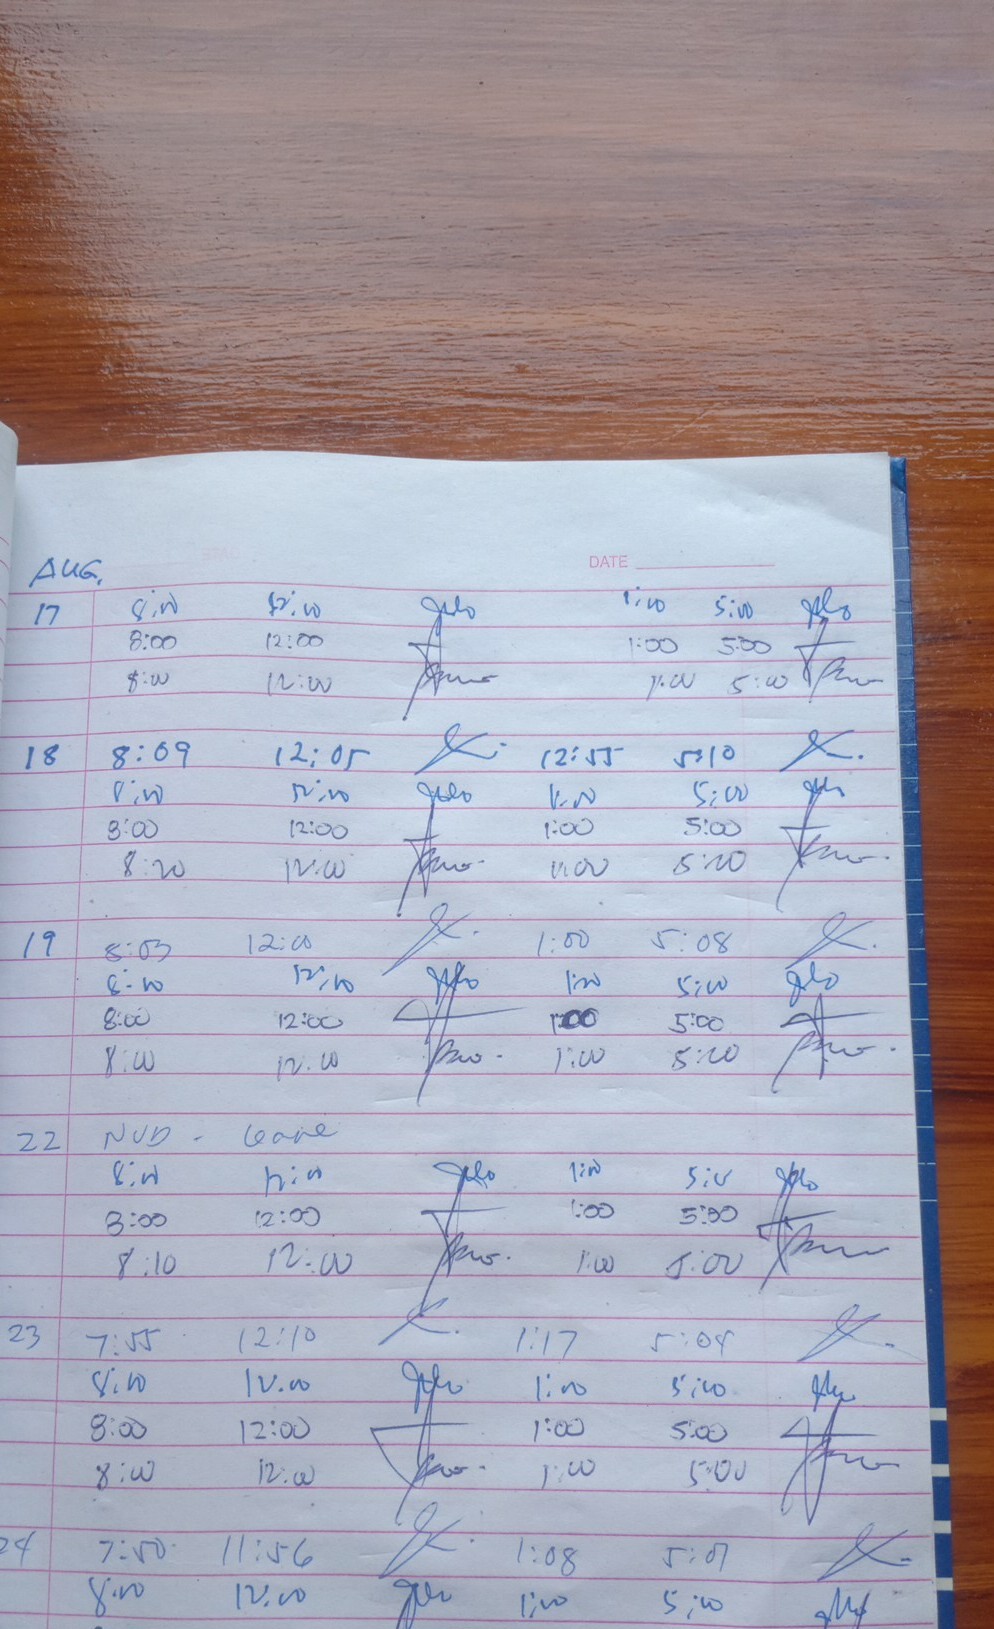 AUG.
DATE
17 8:00 12:00 1:00 5:00
8:00 12:00 1:00 5:00
8:00 12:00 1:00 5:00
18 8:09 12:05 12:55 5:10
8:00 12:00 1:00 5:00
8:00 12:00 1:00 5:00
8:20 12:00 1:00 5:20
19 8:03 12:00 1:00 5:08
8:00 12:00 1:00 5:00
8:00 12:00 1:00 5:00
8:00 12:00 1:00 5:20
22 - Leave
8:00 12:00 1:00 5:00
8:00 12:00 1:00 5:00
8:10 12:00 1:00 5:00
23 7:55 12:10 1:17 5:04
8:00 12:00 1:00 5:00
8:00 12:00 1:00 5:00
8:00 12:00 1:00 5:00
24 7:50 11:56 1:08 5:07
8:00 12:00 1:00 5:00